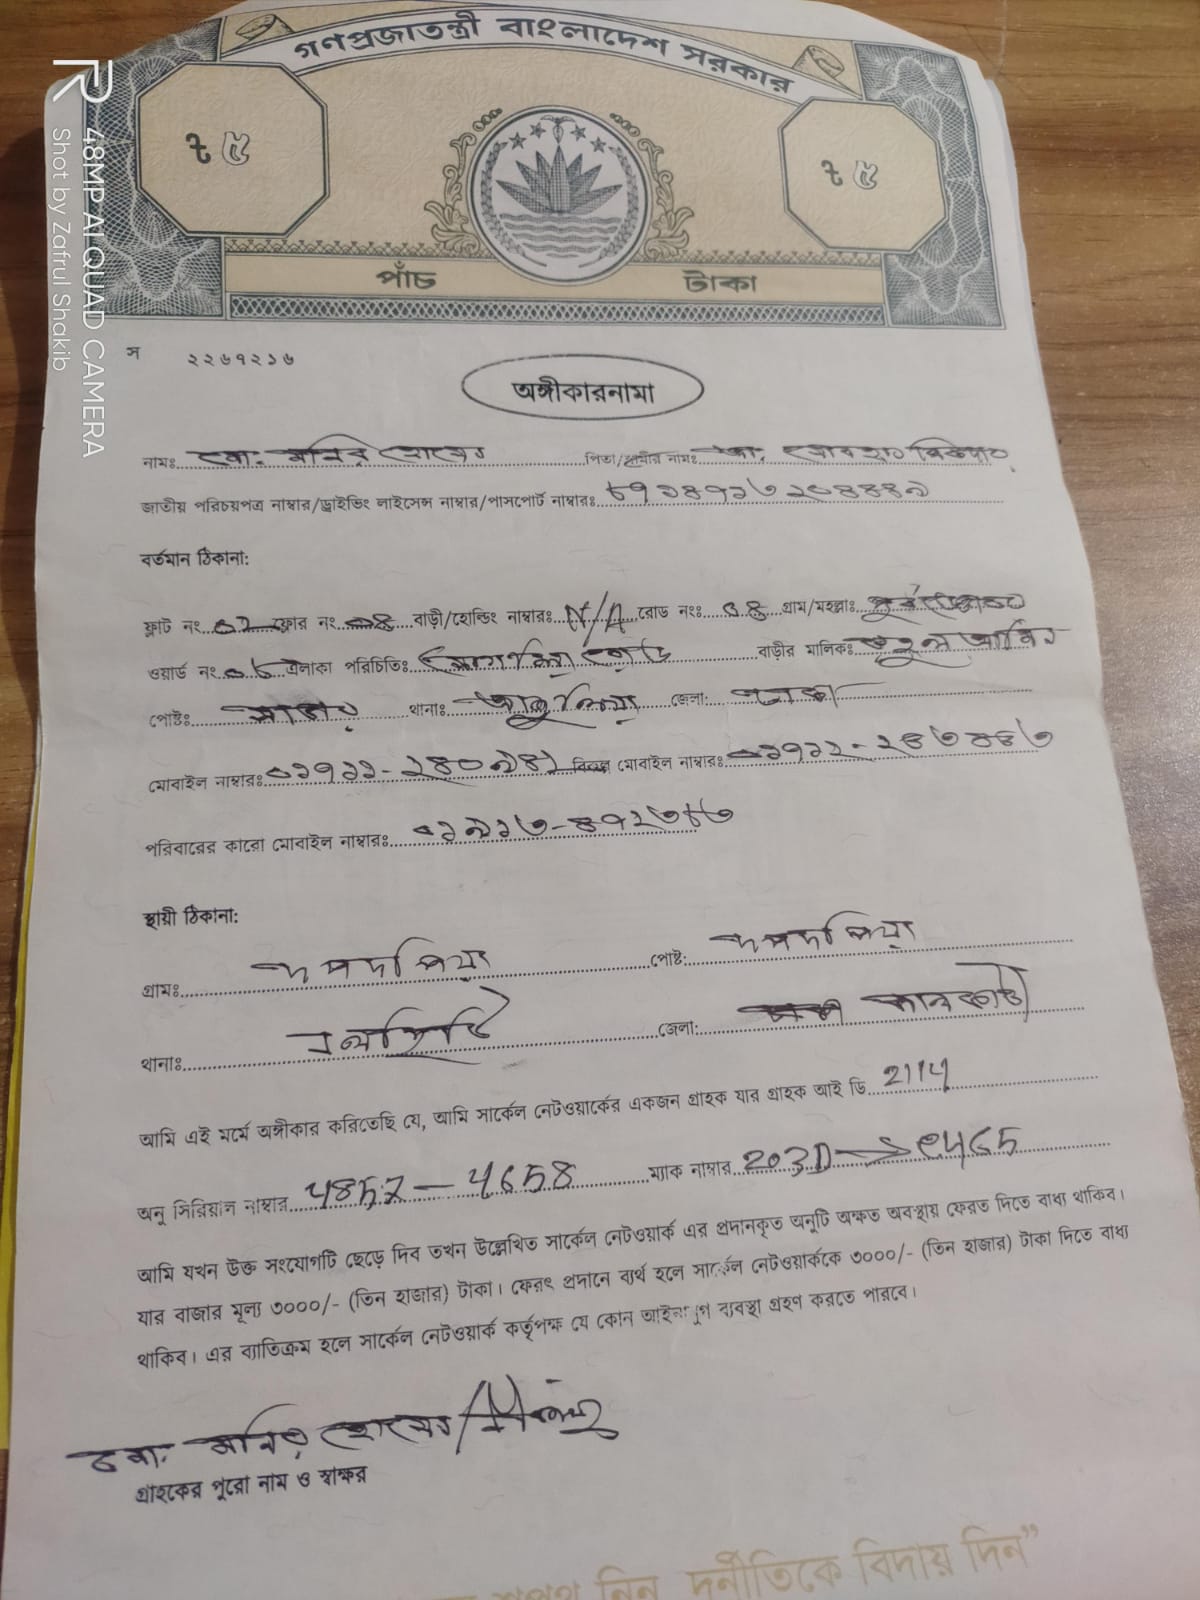 গণপ্রজাতন্ত্রী বাংলাদেশ সরকার
৳ ৫ ৳ ৫
পাঁচ টাকা
48MP AI QUAD CAMERA
Shot by Zafrul Shakib
স ২২৬৭২১৬
অঙ্গীকারনামা
নামঃ মোঃ মনির হোসেন পিতা/স্বামীর নামঃ মোঃ
জাতীয় পরিচয়পত্র নাম্বার/ড্রাইভিং লাইসেন্স নাম্বার/পাসপোর্ট নাম্বারঃ
বর্তমান ঠিকানা:
ফ্লাট নং ফ্লোর নং ০৪ বাড়ী/হোল্ডিং নাম্বারঃ N/A রোড নংঃ ০৪ গ্রাম/মহল্লাঃ
ওয়ার্ড নং ০৮ এলাকা পরিচিতিঃ বাড়ীর মালিকঃ
পোষ্টঃ সাভার থানাঃ আশুলিয়া জেলা: ঢাকা
মোবাইল নাম্বারঃ বিকল্প মোবাইল নাম্বারঃ
পরিবারের কারো মোবাইল নাম্বারঃ
স্থায়ী ঠিকানা:
গ্রামঃ দপদপিয়া পোষ্ট: দপদপিয়া
থানাঃ নলছিটি জেলা: ঝালকাঠী
আমি এই মর্মে অঙ্গীকার করিতেছি যে, আমি সার্কেল নেটওয়ার্কের একজন গ্রাহক যার গ্রাহক আই ডি 2114
অনু সিরিয়াল নাম্বার ম্যাক নাম্বার
আমি যখন উক্ত সংযোগটি ছেড়ে দিব তখন উল্লেখিত সার্কেল নেটওয়ার্ক এর প্রদানকৃত অনুটি অক্ষত অবস্থায় ফেরত দিতে বাধ্য থাকিব।
যার বাজার মূল্য ৩০০০/- (তিন হাজার) টাকা। ফেরৎ প্রদানে ব্যর্থ হলে সার্কেল নেটওয়ার্ককে ৩০০০/- (তিন হাজার) টাকা দিতে বাধ্য
থাকিব। এর ব্যতিক্রম হলে সার্কেল নেটওয়ার্ক কর্তৃপক্ষ যে কোন আইনানুগ ব্যবস্থা গ্রহণ করতে পারবে।
মোঃ মনির হোসেন
গ্রাহকের পুরো নাম ও স্বাক্ষর
শপথ নিন দুর্নীতিকে বিদায় দিন”